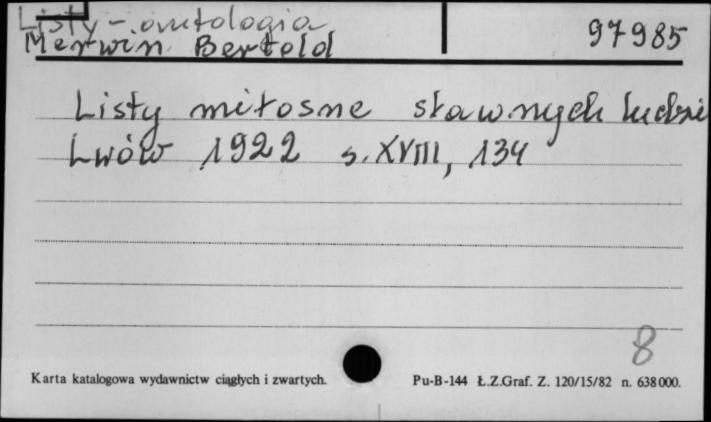 Listy - antologia
97985
Merwin Bertold
Listy miłosne sławnych ludzi
Lwów 1922 s. XVIII, 134
8
Karta katalogowa wydawnictw ciągłych i zwartych. Pu-B-144 Ł.Z.Graf. Z. 120/15/82 n. 638000.